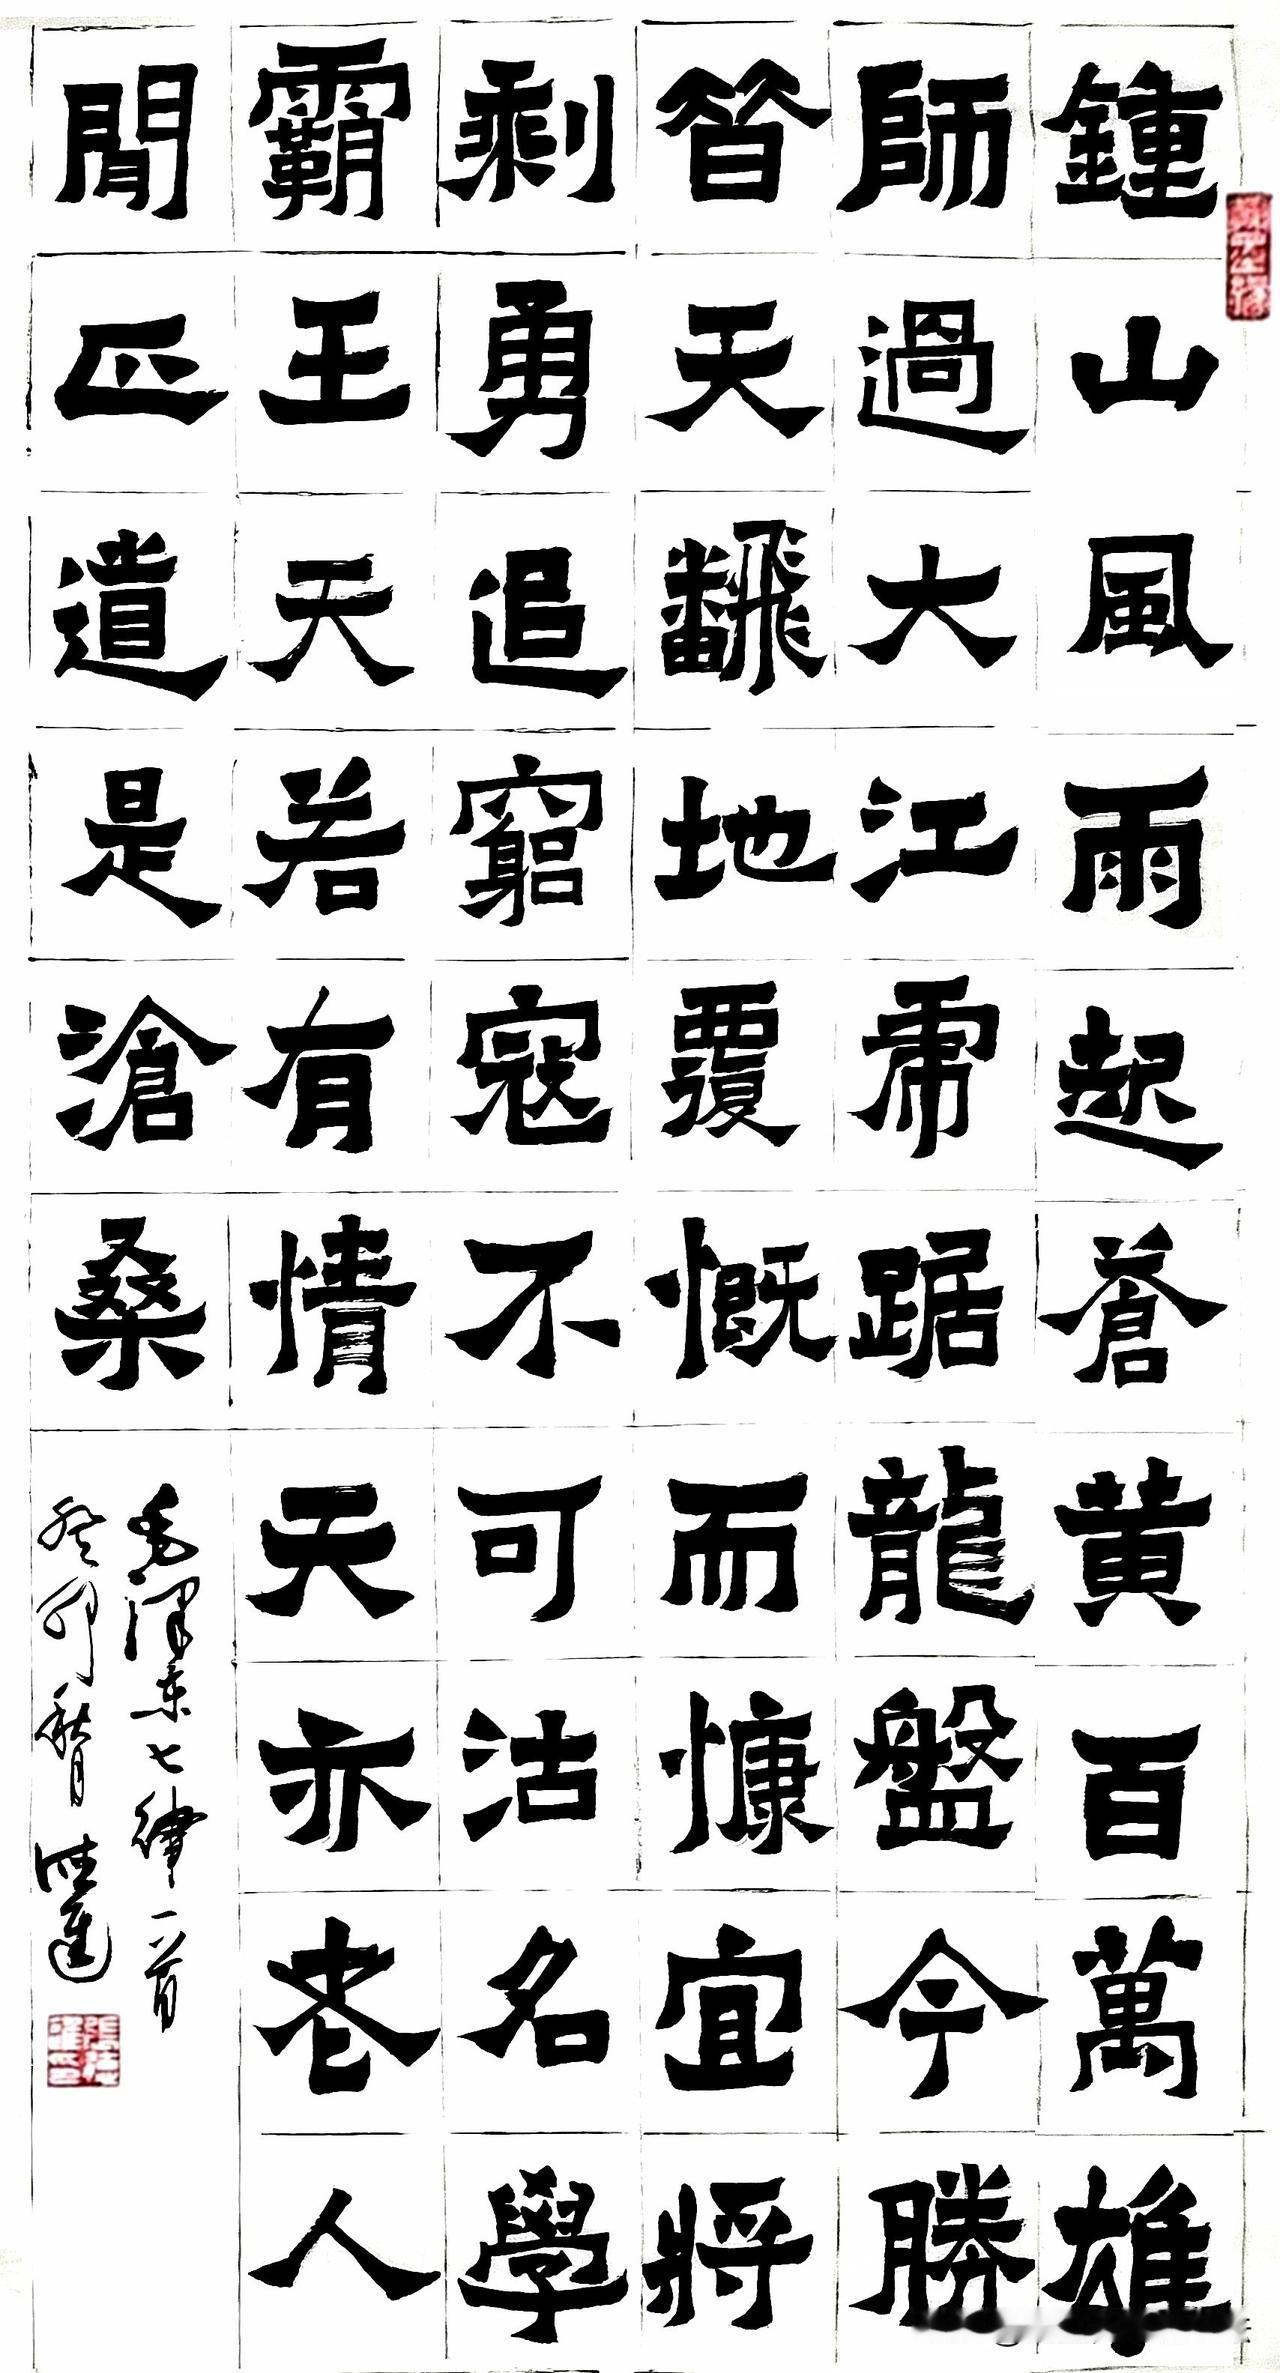 鍾山風雨起蒼黃百萬雄
師過大江虎踞龍盤今勝
昔天飜地覆慨而慷宜將
剩勇追窮寇不可沽名學
霸王天若有情天亦老人
閒正道是滄桑
毛泽东七律一首
癸卯秋月